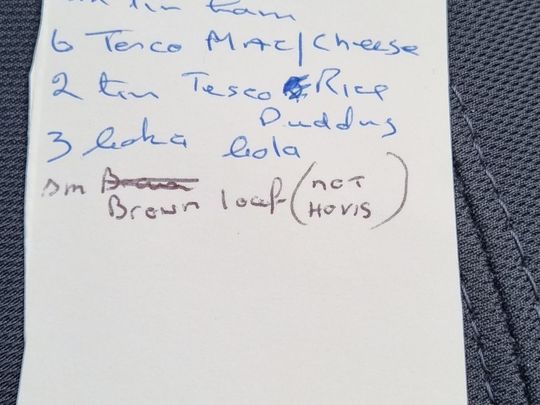 tin ham
6 Tesco MAC/Cheese
2 tin Tesco Rice
Pudding
3 koka kola
sm
Brown loaf (NOT
HOVIS)